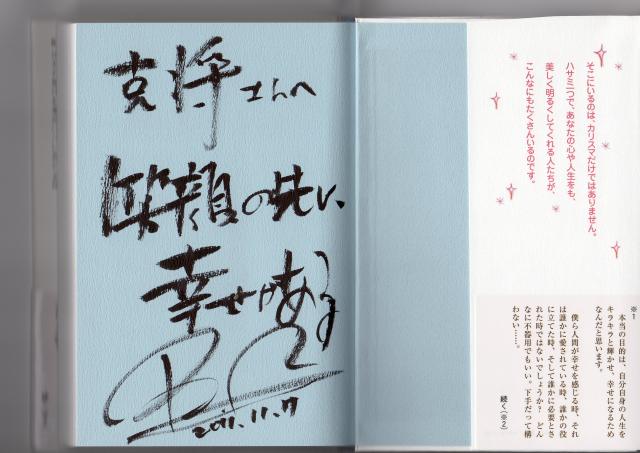 克将さんへ
笑顔の先に、
幸せがある
2011.11.17
そこにいるのは、カリスマだけではありません。
ハサミ一つで、あなたの心や人生をも、
美しく明るくしてくれる人たちが、
こんなにもたくさんいるのです。
※1
本当の目的は、自分自身の人生を
キラキラと輝かせ、幸せになるため
なんだと思います。
僕ら人間が幸せを感じる時、それ
は誰かに愛されている時、誰かの役
に立てた時、そして誰かに必要とさ
れた時ではないでしょうか？ どん
なに不器用でもいい。下手だって構
わない……。
続く（※2）